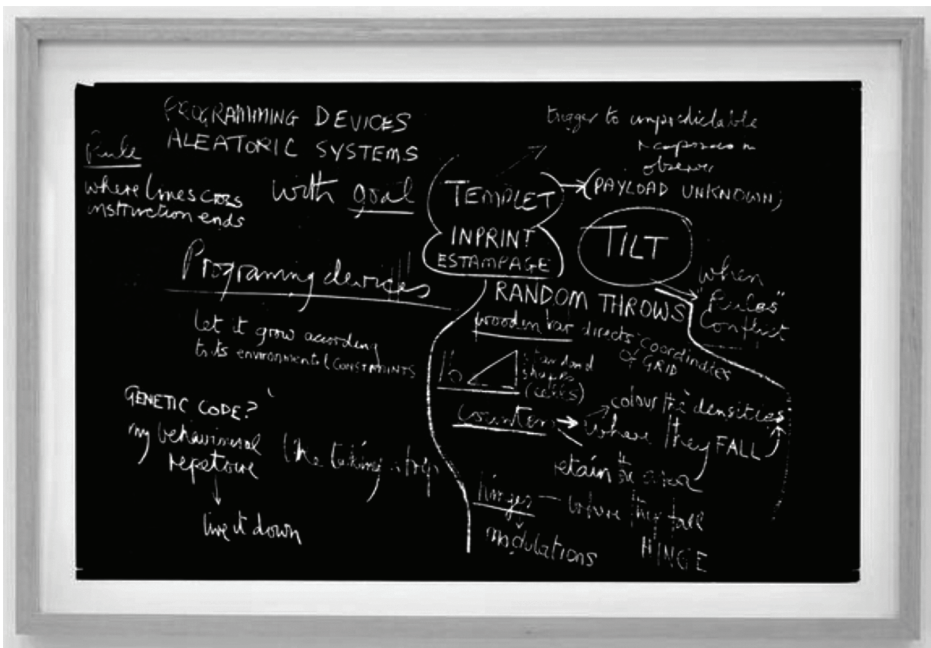 PROGRAMMING DEVICES
ALEATORIC SYSTEMS
with goal
Rule
where lines cross
instruction ends
Programing devices
let it grow according
to its environmental CONSTRAINTS
GENETIC CODE?
my behavioural
repetoire
live it down
like taking a trip
trigger to unpredictable
responses in
observer
(PAYLOAD UNKNOWN)
TEMPLET
INPRINT
ESTAMPAGE
TILT
when
"Rules"
Conflict
RANDOM THROWS
wooden bar directs coordinates
of GRID
16
standard
shapes
counters
colour densities
where they FALL
retain the
hinges – where they fall
modulations
HINGE